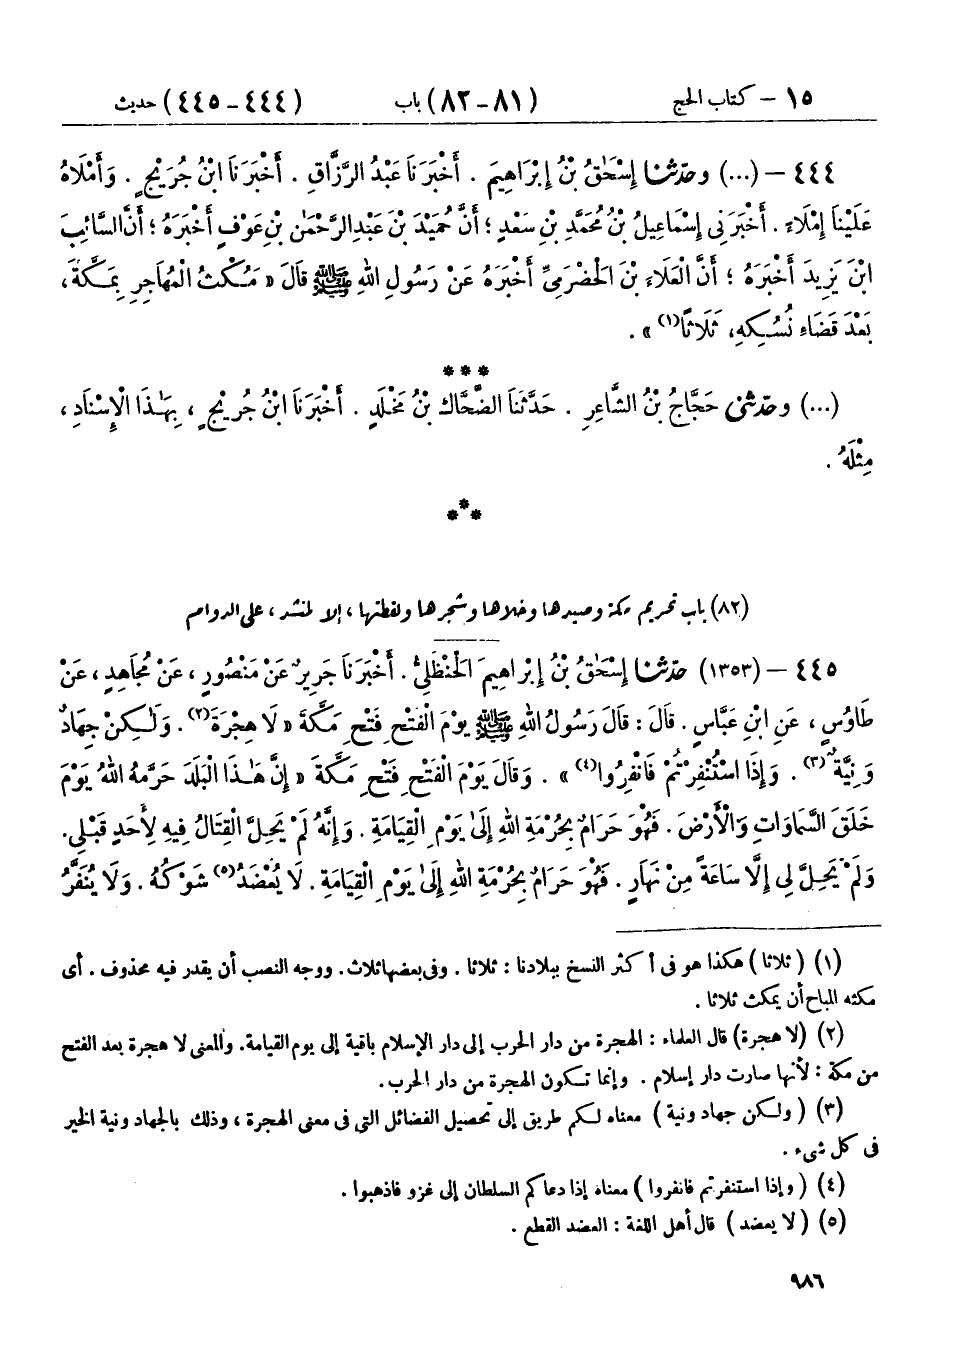 ١٥ – كتاب الحج (٨١-٨٢) باب (٤٤٤-٤٤٥) حديث
٤٤٤ – (...) وحدثنا إِسْحَٰقُ بْنُ إِبْرَاهِيمَ . أَخْبَرَنَا عَبْدُ الرَّزَّاقِ . أَخْبَرَنَا ابْنُ جُرَيْجٍ . وَأَمْلَاهُ
عَلَيْنَا إِمْلَاءً . أَخْبَرَنِى إِسْمَاعِيلُ بْنُ مُحَمَّدِ بْنِ سَعْدٍ ؛ أَنَّ حُمَيْدَ بْنَ عَبْدِ الرَّحْمَٰنِ بْنِ عَوْفٍ أَخْبَرَهُ ؛ أَنَّ السَّائِبَ
ابْنَ يَزِيدَ أَخْبَرَهُ ؛ أَنَّ الْعَلَاءَ بْنَ الْحَضْرَمِىِّ أَخْبَرَهُ عَنْ رَسُولِ اللهِ ﷺ قَالَ « مَكْثُ الْمُهَاجِرِ بِمَكَّةَ ،
بَعْدَ قَضَاءِ نُسُكِهِ ، ثَلَاثًا(١) » .
* * *
(...) وحدثنى حَجَّاجُ بْنُ الشَّاعِرِ . حَدَّثَنَا الضَّحَّاكُ بْنُ مَخْلَدٍ . أَخْبَرَنَا ابْنُ جُرَيْجٍ ، بِهَٰذَا الْإِسْنَادِ ،
مِثْلَهُ .
* * *
(٨٢) باب تحريم مكة وصيدها وخلاها وشجرها ولقطتها ، إلا لمنشد ، على الدوام
٤٤٥ – (١٣٥٣) حدثنا إِسْحَٰقُ بْنُ إِبْرَاهِيمَ الْحَنْظَلِىُّ . أَخْبَرَنَا جَرِيرٌ عَنْ مَنْصُورٍ ، عَنْ مُجَاهِدٍ ، عَنْ
طَاوُسٍ ، عَنِ ابْنِ عَبَّاسٍ . قَالَ : قَالَ رَسُولُ اللهِ ﷺ يَوْمَ الْفَتْحِ فَتْحِ مَكَّةَ « لَا هِجْرَةَ(٢) . وَلَٰكِنْ جِهَادٌ
وَنِيَّةٌ(٣) . وَإِذَا اسْتُنْفِرْتُمْ فَانْفِرُوا(٤) » . وَقَالَ يَوْمَ الْفَتْحِ فَتْحِ مَكَّةَ « إِنَّ هَٰذَا الْبَلَدَ حَرَّمَهُ اللهُ يَوْمَ
خَلَقَ السَّمَاوَاتِ وَالْأَرْضَ . فَهُوَ حَرَامٌ بِحُرْمَةِ اللهِ إِلَىٰ يَوْمِ الْقِيَامَةِ . وَإِنَّهُ لَمْ يَحِلَّ الْقِتَالُ فِيهِ لِأَحَدٍ قَبْلِى .
وَلَمْ يَحِلَّ لِى إِلَّا سَاعَةً مِنْ نَهَارٍ . فَهُوَ حَرَامٌ بِحُرْمَةِ اللهِ إِلَىٰ يَوْمِ الْقِيَامَةِ . لَا يُعْضَدُ(٥) شَوْكُهُ . وَلَا يُنَفَّرُ
(١) ( ثلاثا ) هكذا هو فى أكثر النسخ ببلادنا : ثلاثا . وفى بعضها ثلاث . ووجه النصب أن يقدر فيه محذوف . أى
مكثه المباح أن يمكث ثلاثا .
(٢) (لا هجرة) قال العلماء : الهجرة من دار الحرب إلى دار الإسلام باقية إلى يوم القيامة. والمعنى لا هجرة بعد الفتح
من مكة : لأنها صارت دار إسلام . وإنما تكون الهجرة من دار الحرب .
(٣) ( ولكن جهاد ونية ) معناه لكم طريق إلى تحصيل الفضائل التى فى معنى الهجرة ، وذلك بالجهاد ونية الخير
فى كل شىء .
(٤) ( وإذا استنفرتم فانفروا ) معناه إذا دعاكم السلطان إلى غزو فاذهبوا .
(٥) ( لا يعضد ) قال أهل اللغة : العضد القطع .
٩٨٦